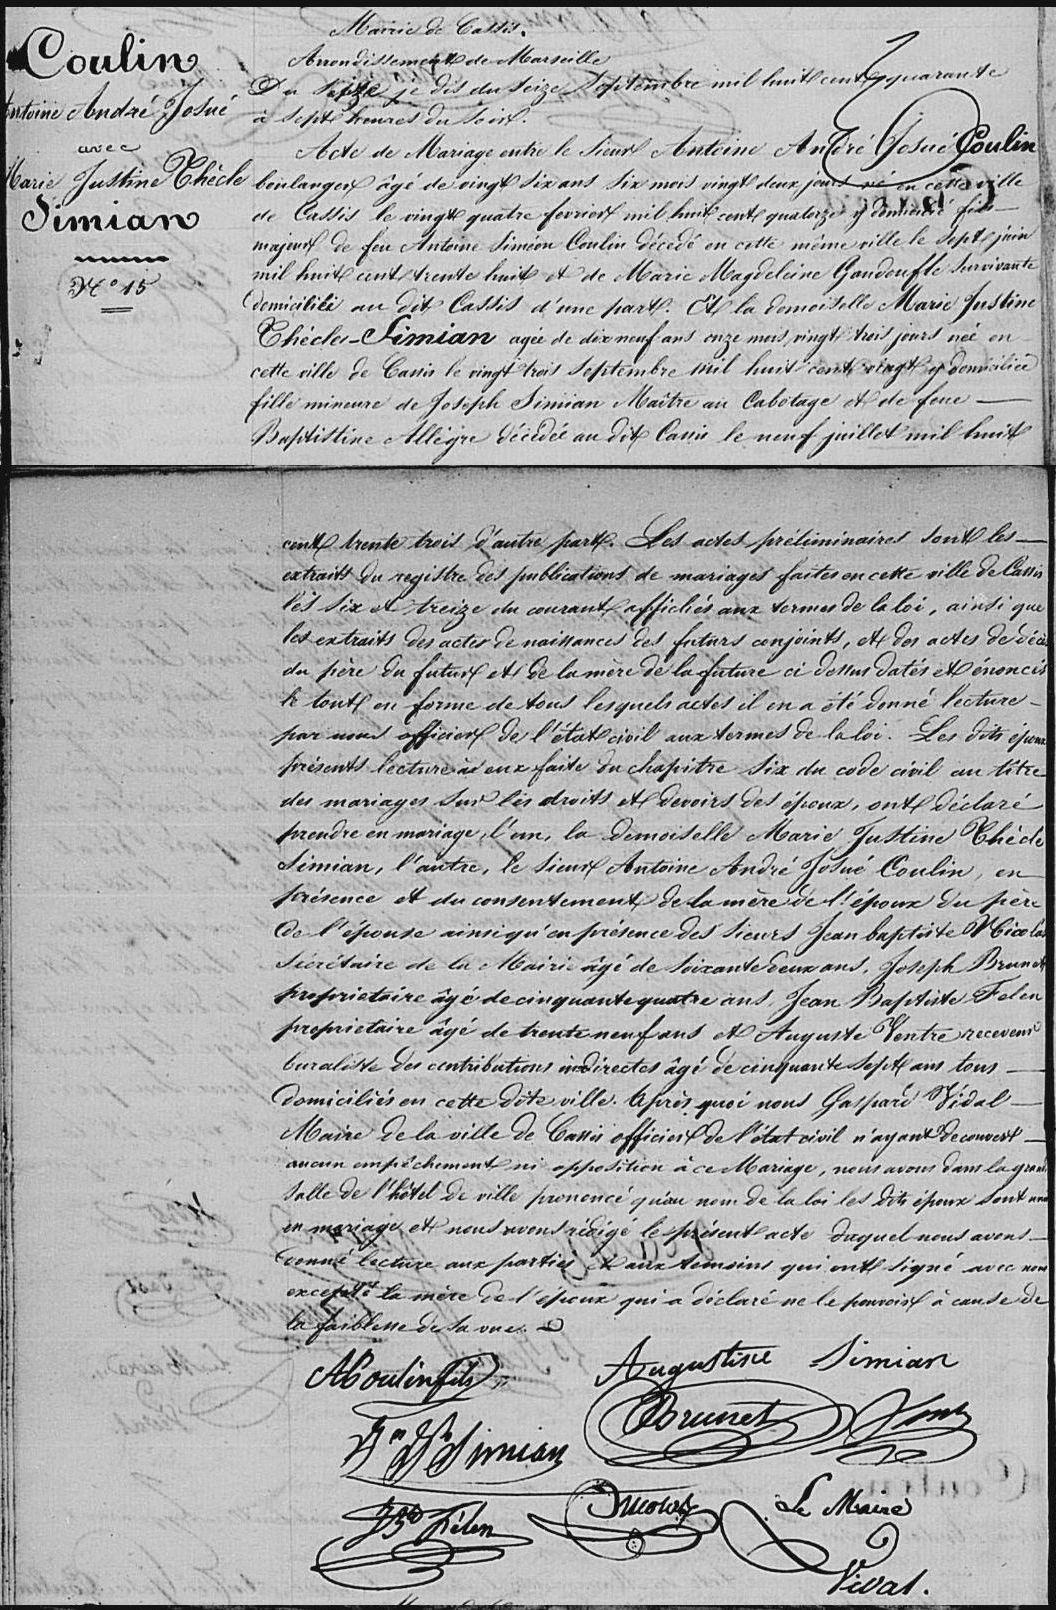 Coulin
Antoine André Josué
avec
Marie Justine Thècle
Simian
N.o 15
Mairie de Cassis.
Arrondissement de Marseille
Du seize je dis du seize septembre mil huit cent quarante
à sept heures du soir.
Acte de Mariage entre le sieur Antoine André Josué Coulin
boulanger âgé de vingt six ans six mois vingt deux jours né en cette ville
de Cassis le vingt quatre fevrier mil huit cent quatorze y demeuré fils
majeur de feu Antoine Siméon Coulin décédé en cette même ville le sept juin
mil huit cent trente huit et de Marie Magdeleine Gandoufle survivante
domiciliée au dit Cassis d'une part. Et la demoiselle Marie Justine
Thécle Simian agée de dix neuf ans onze mois vingt trois jours née en
cette ville de Cassis le vingt trois septembre mil huit cent vingt y domiciliée
fille mineure de Joseph Simian Maître au Cabotage et de feue
Baptistine Allègre décédée au dit Cassis le neuf juillet mil huit
cent trente trois d'autre part. Les actes préliminaires sont les
extraits du registre des publications de mariages faites en cette ville de Cassis
les six et treize du courant affichés aux termes de la loi, ainsi que
les extraits des actes de naissances des futurs conjoints, et des actes de décès
du père du futur et de la mère de la future ci dessus datés et énoncés
le tout en forme de tous lesquels actes il en a été donné lecture
par nous officier de l'état civil aux termes de la loi. Les dits époux
présents lecture à eux faite du chapitre six du code civil au titre
des mariages sur les droits et devoirs des époux, ont déclaré
prendre en mariage, l'un, la demoiselle Marie Justine Thécle
Simian, l'autre, le sieur Antoine André Josué Coulin, en
présence et du consentement de la mère de l'époux du père
de l'épouse ainsi qu'en présence des sieurs Jean baptiste Nicolas
sécrétaire de la Mairie âgé de soixante deux ans, Joseph Brunet
proprietaire âgé de cinquante quatre ans, Jean Baptiste Felen
proprietaire âgé de trente neuf ans et Auguste Ventre receveur
buraliste des contributions indirectes âgé de cinquante sept ans tous
domiciliés en cette dite ville. Après quoi nous Gaspard Vidal
Maire de la ville de Cassis officier de l'état civil n'ayant decouvert
aucun empêchement ni opposition à ce Mariage, nous avons dans la grande
salle de l'hôtel de ville prononcé qu'au nom de la loi les dits époux sont unis
en mariage et nous avons rédigé le présent acte duquel nous avons
donné lecture aux parties et aux temoins qui ont signé avec nous
excepté la mère de l'époux qui a déclaré ne le pouvoir à cause de
la faiblesse de sa vue.
A Coulin fils
Augustine Simian
Brunet
Simian
Jn Bte Félen
Nicolas
Le Maire
Vidal.